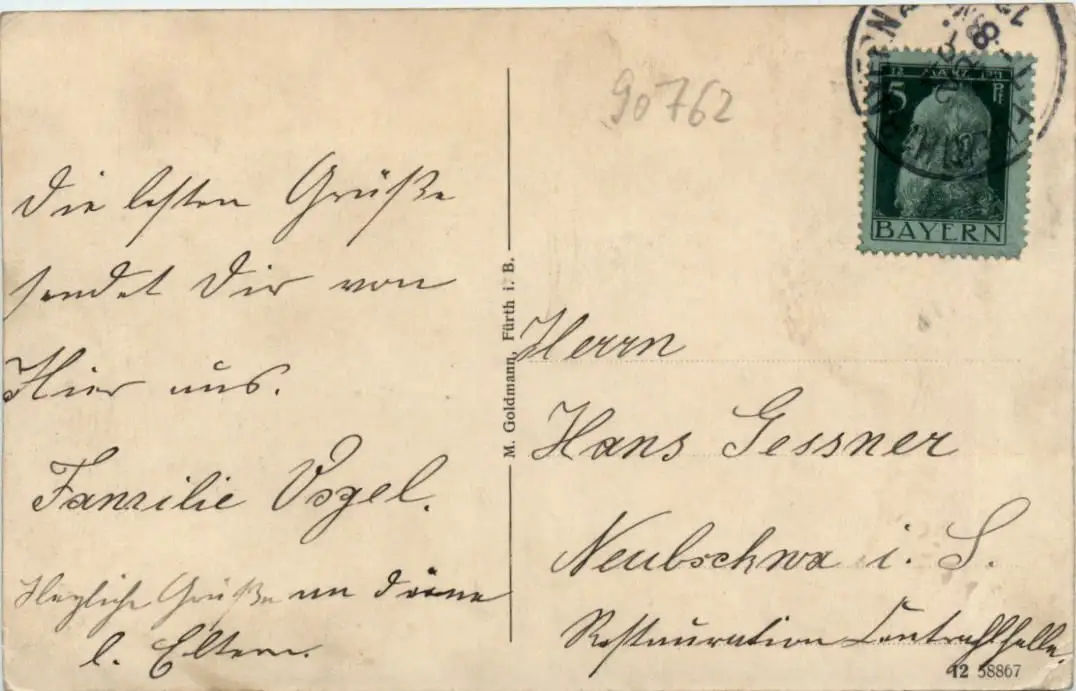 Die besten Grüße
sendet Dir von
Hier aus.
Familie Vogel.
Herzliche Grüße an Deine
l. Eltern.
M. Goldmann, Fürth i. B.
90762
BAYERN
5 Pf
BAYERN
Herrn
Hans Gessner
i. S.
Restauration Centralhalle.
12 58867